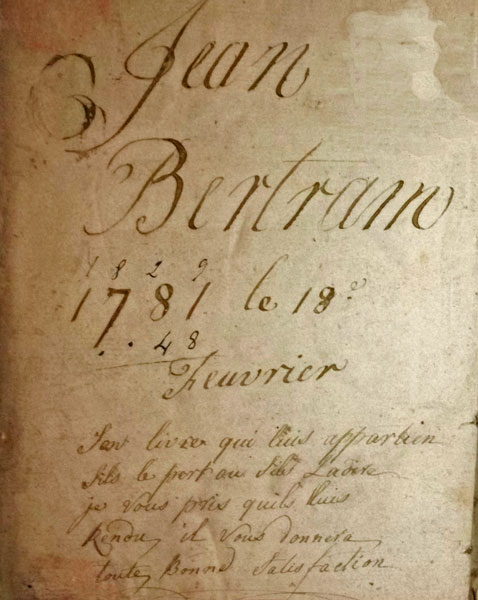 Jean
Bertram
1829
1781 le 18e
48
Feuvrier
Son livre qui luis appartien
sils le pert au sils
je vous pris quils luis
Rendu, il vous donnera
toute Bonne Satisfaction